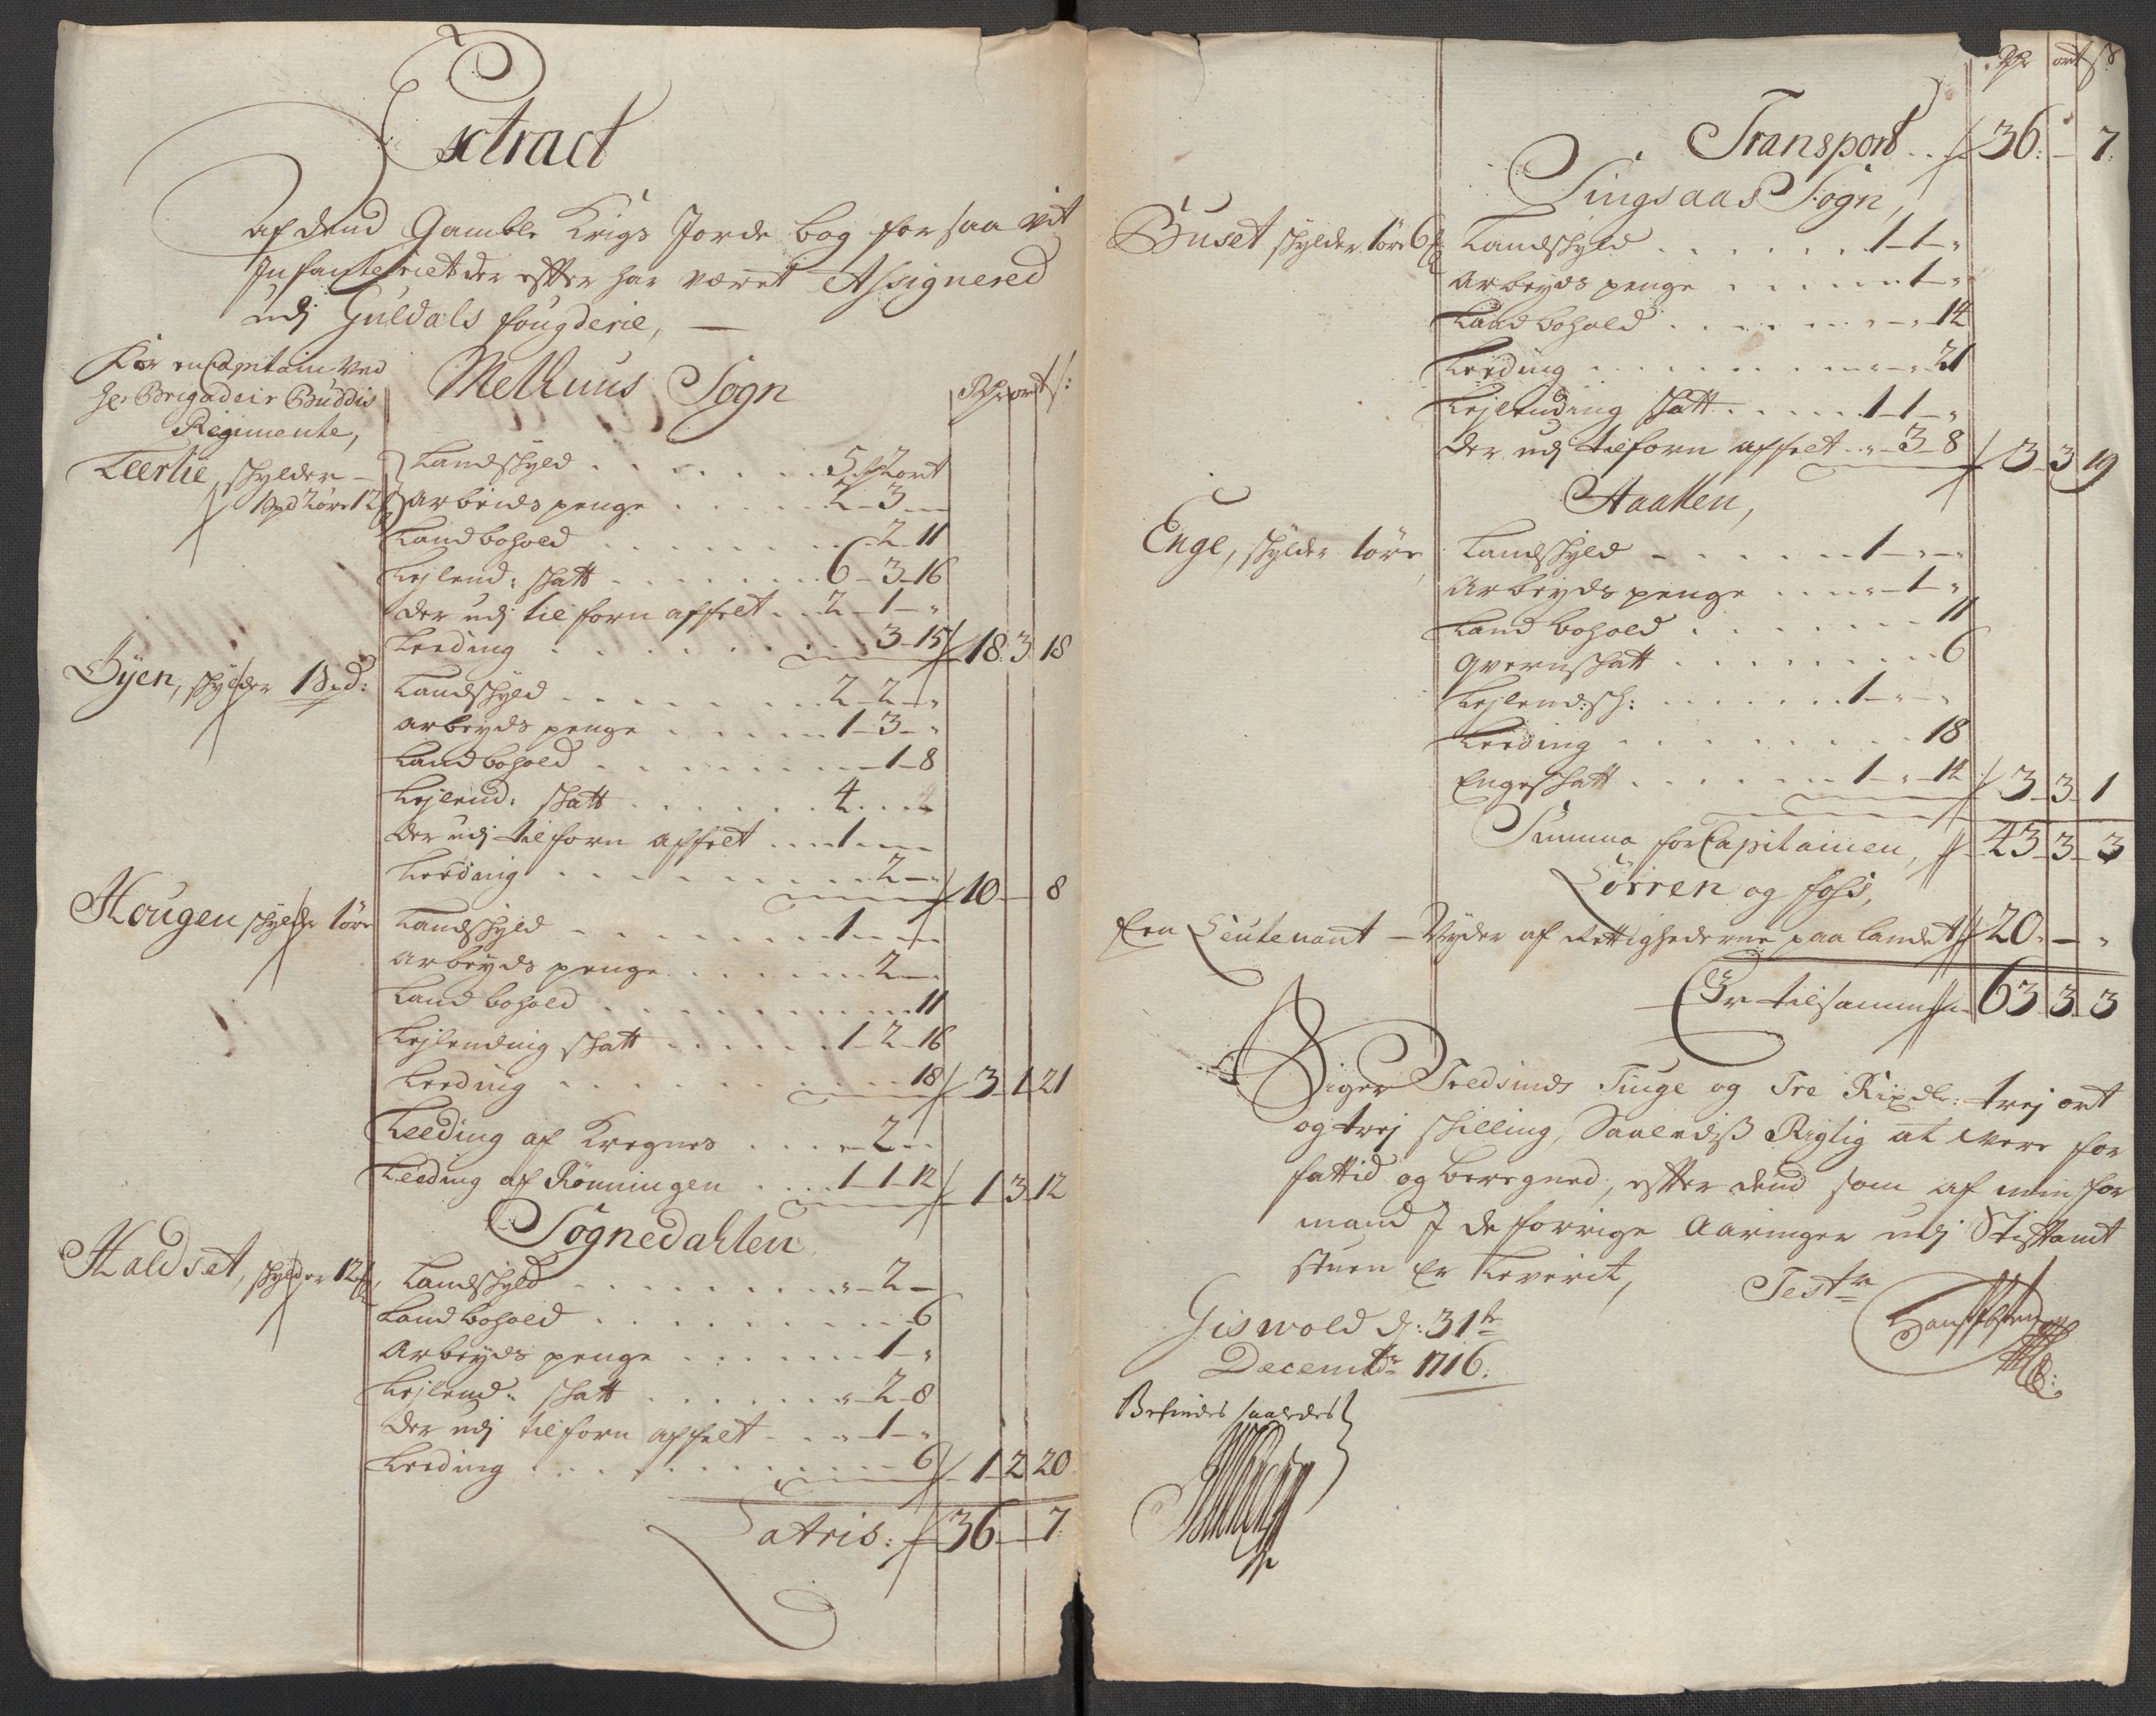 Extract
af dend Gamble Krigs Jorde bog for saa vit
Infanteriet der effter har været Assignered
udj Guldals fougderie, —
For en Capitain ved
Hr Brigadeir Büddis
Regimente,
Melhuus Sogn
Rdr ort s:
Leerlie, skylder —
1 spd 2 øre 12
Landskyld . . . 5 . 2 ort
Arbeidspenge . . . 2 – 3 —
Landbohold . . . 2 – 11
Lejlend: skatt . . . 6 – 3 – 16
Der udj tilforn affelt . . 2 – 1 – „
Leeding . . . 3 – 15 / 18 3 18
Øyen, skylder 1 Spd:
Landskyld . . . 2 – 2 – „
Arbeyds penge . . . 1 – 3 – „
Landbohold . . . 1 – 8
Lejlend: skatt . . . 4 . .
Der udj tilforn affelt . . . 1 . —
Leeding . . . 2 – „ / 10 – 8
Hougen skylder 1 øre
Landskyld . . . 1 – –
Arbeyds penge . . . 2 – „
Landbohold . . . 11
Lejlending skatt . . . 1 – 2 – 16
Leeding . . . 18 / 3 1 21
Leeding af Kregnes . . . 2 –
Leeding af Rønningen . . . 1 – 1 – 12 / 1 3 12
Sognedahlen
Haldset, skylder 12
Landskyld . . . „ – 2 –
Landbohold . . . 6
Arbeyds penge . . . 1 – „
Lejlend: skatt . . . „ – 2 – 8
Der udj tilforn affelt . . „ – 1 – „
Leeding . . . 6 / 1 2 20
Latris: 36 – 7
Rdr ort s
Transport . . 36: – 7:
Singsaas Sogn,
Buset skylder 1 øre 6
Landskyld . . . 1 – 1 – „
Arbeyds penge . . . 1 – „
Landbohold . . . „ – „ 14
Leeding . . . „ – „ 21
Lejlending skatt . . . 1 – 1 – „
Der udj tilforn affelt . . „ – 3 – 8 / 3 3 19
Haalten,
Enge, skylder 1 øre
Landskyld . . . 1 – „ – „
Arbeyds penge . . . „ – 1 – „
Landbohold . . . 11
Qvernskatt . . . 6
Lejlend: sk: . . . 1 – „ – „
Leeding . . . 18
Engeskatt . . . 1 – „ – 14 / 3 – 3 – 1
Summa for Capitainen, 43 – 3 – 3
Lørren og foss,
Een Leutenant – Nyder af Rettighederne paa landet 20 – „
Er tilsammen 63 3 3
Siger Tredsinds Tiuge og Tre Rixdlr: trej ort
og trej skilling, Saaledis Rigtig at være for
fattid og beregned, effter dend som af min for
mand J de forrige Aaringer udj Stiftamt
stuen Er Leverit,
Giswold d: 31te
Decembr 1716.
Teste
Befindes saaledes